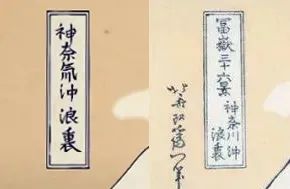 神奈氚沖浪裏
冨嶽三十六景
神奈川沖
浪裏
北斎改為一筆